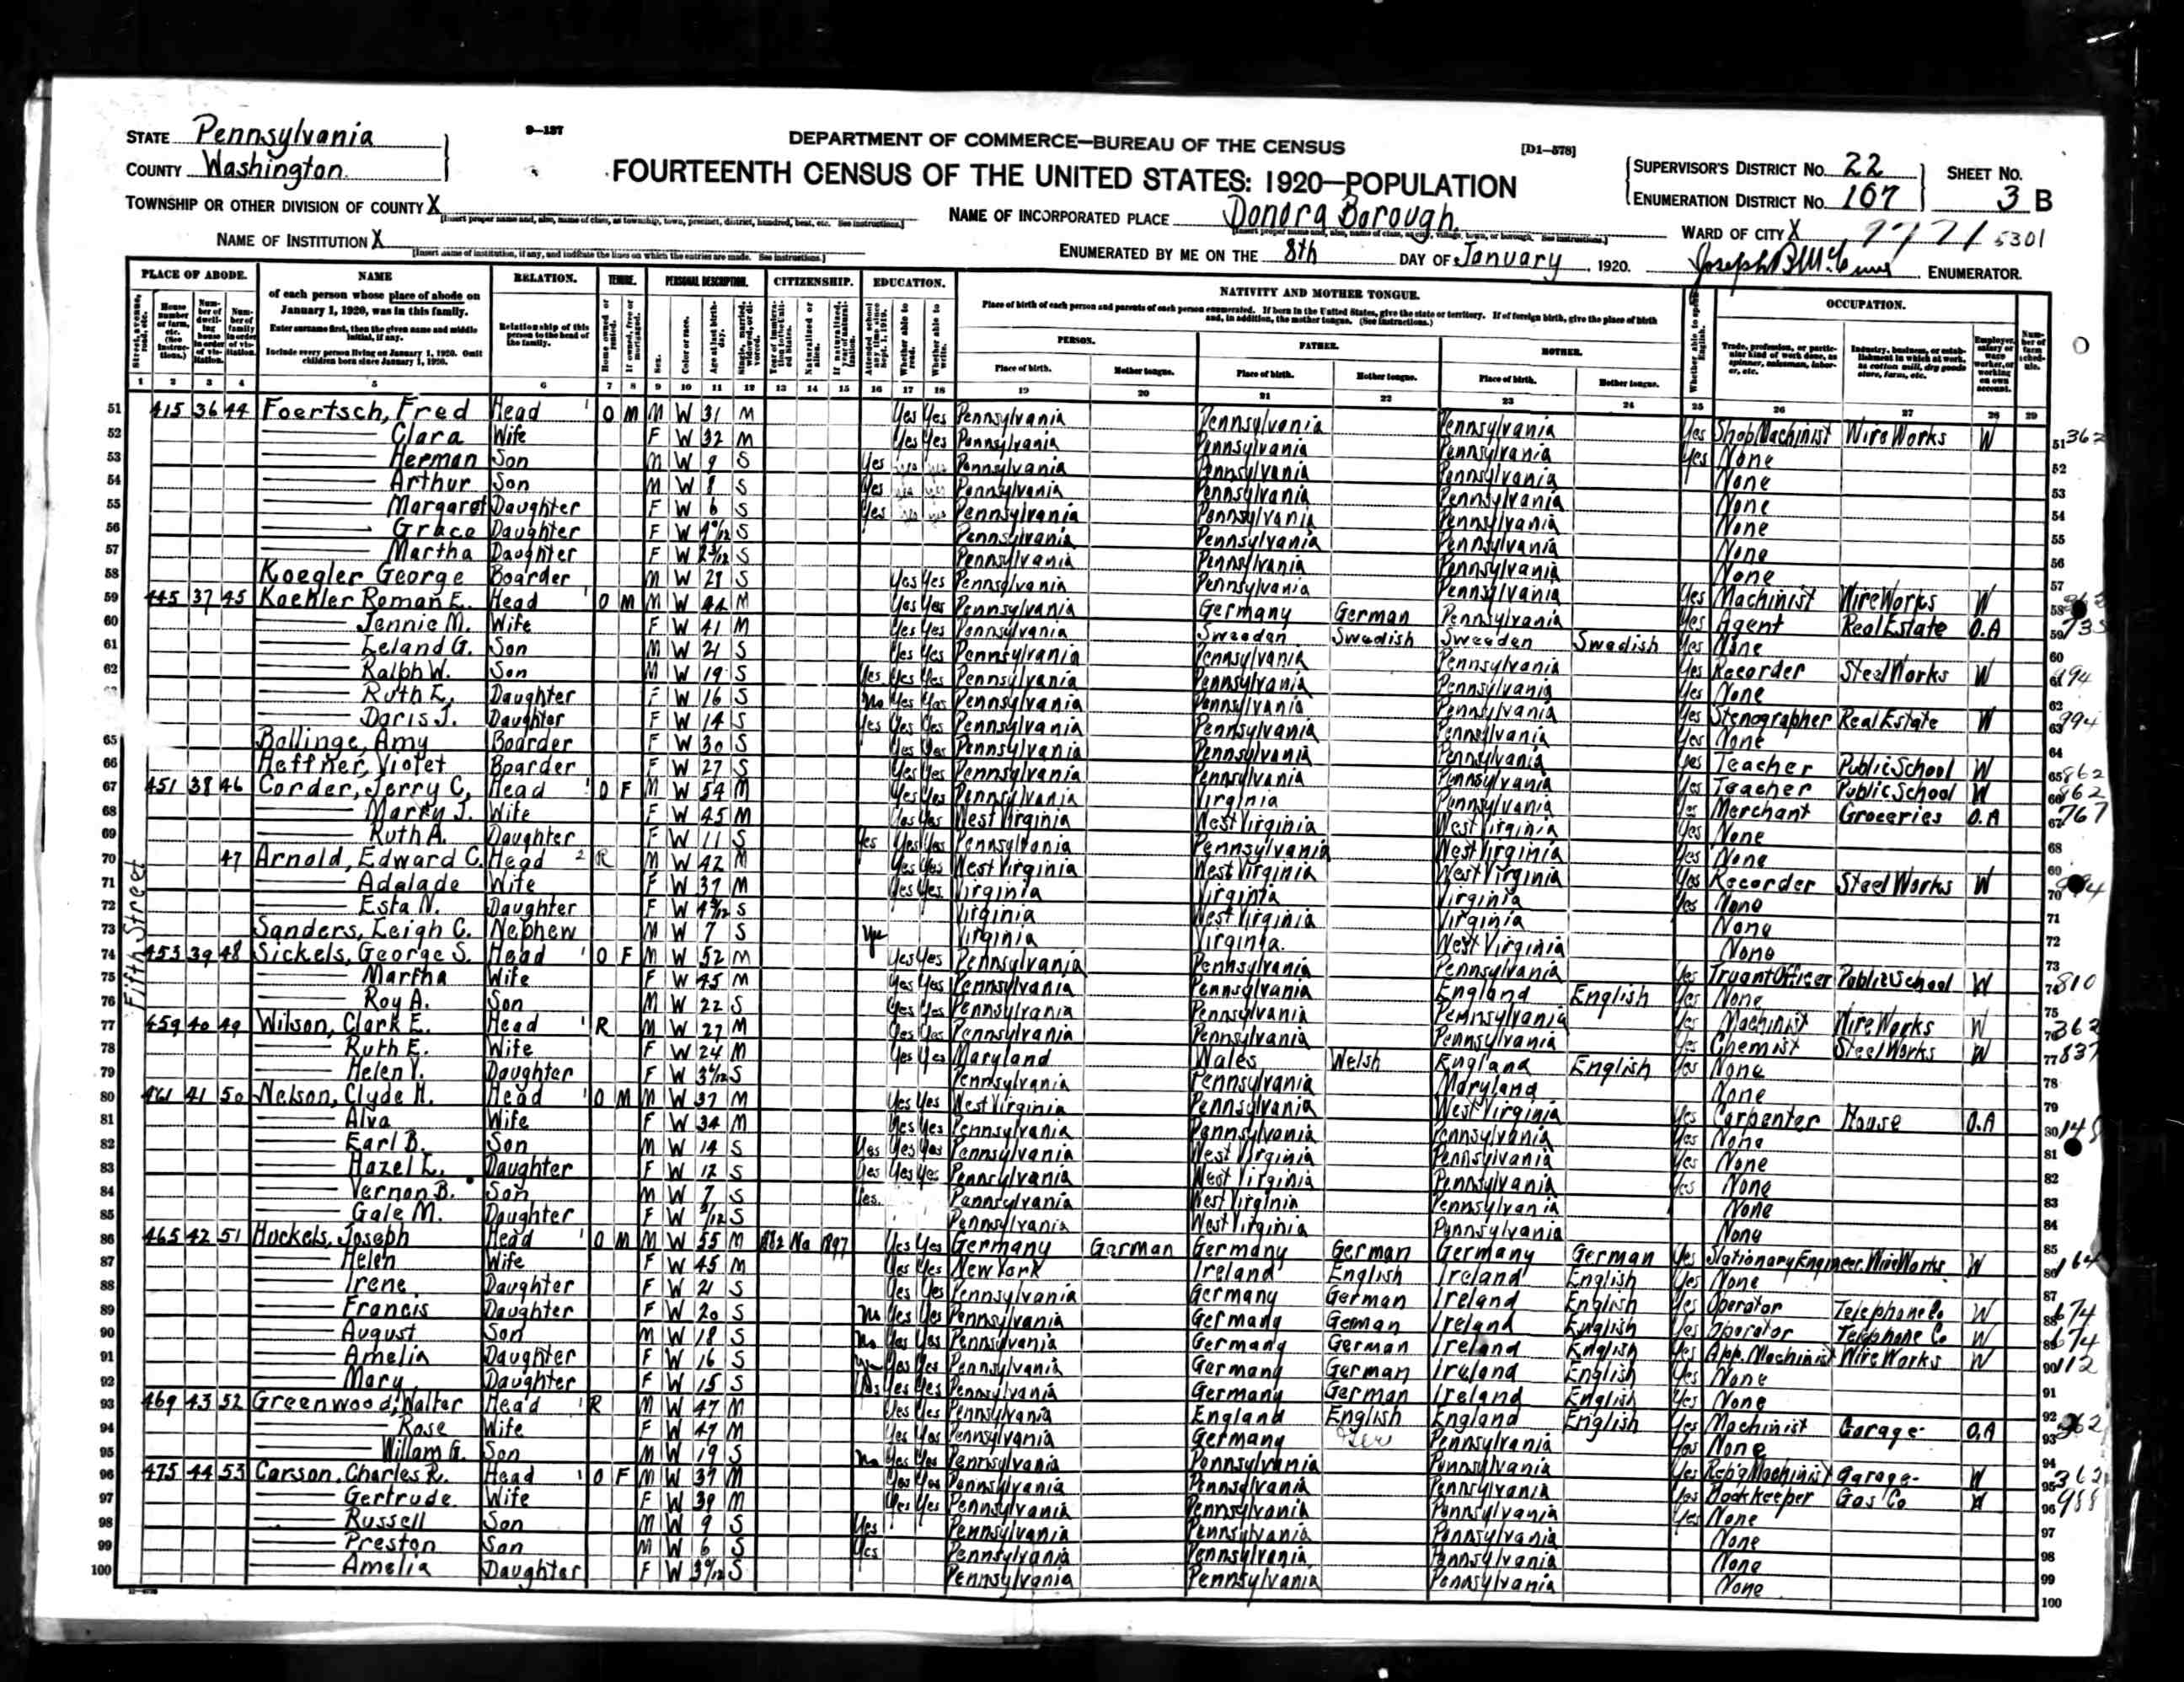 STATE Pennsylvania
9—137
DEPARTMENT OF COMMERCE—BUREAU OF THE CENSUS
[D1—578]
COUNTY Washington
FOURTEENTH CENSUS OF THE UNITED STATES: 1920—POPULATION
SUPERVISOR'S DISTRICT No. 22
SHEET No.
ENUMERATION DISTRICT No. 167
3 B
TOWNSHIP OR OTHER DIVISION OF COUNTY X
NAME OF INCORPORATED PLACE Donora Borough
WARD OF CITY X
5301
NAME OF INSTITUTION X
ENUMERATED BY ME ON THE 8th DAY OF January, 1920. ENUMERATOR.
PLACE OF ABODE. NAME RELATION. TENURE. PERSONAL DESCRIPTION. CITIZENSHIP. EDUCATION. NATIVITY AND MOTHER TONGUE. OCCUPATION.
of each person whose place of abode on January 1, 1920, was in this family.
Enter surname first, then the given name and middle initial, if any.
Include every person living on January 1, 1920. Omit children born since January 1, 1920.
Relationship of this person to the head of the family.
Place of birth of each person and parents of each person enumerated. If born in the United States, give the state or territory. If of foreign birth, give the place of birth and, in addition, the mother tongue. (See instructions.)
PERSON. FATHER. MOTHER.
Place of birth. Mother tongue. Place of birth. Mother tongue. Place of birth. Mother tongue.
1 2 3 4 5 6 7 8 9 10 11 12 13 14 15 16 17 18 19 20 21 22 23 24 25 26 27 28 29
51 415 36 44 Foertsch, Fred Head O M M W 31 M Yes Yes Pennsylvania Pennsylvania Pennsylvania Yes Shop Machinist Wire Works W
52 Clara Wife F W 32 M Yes Yes Pennsylvania Pennsylvania Pennsylvania Yes None
53 Herman Son M W 9 S Yes Pennsylvania Pennsylvania Pennsylvania None
54 Arthur Son M W 8 S Yes Pennsylvania Pennsylvania Pennsylvania None
55 Margaret Daughter F W 6 S Yes Pennsylvania Pennsylvania Pennsylvania None
56 Grace Daughter F W S Pennsylvania Pennsylvania Pennsylvania None
57 Martha Daughter F W S Pennsylvania Pennsylvania Pennsylvania None
58 Koegler George Boarder M W S Yes Yes Pennsylvania Pennsylvania Pennsylvania Yes Machinist Wire Works W
59 445 37 45 Koehler Roman E. Head O M M W M Yes Yes Pennsylvania Germany German Pennsylvania Yes Agent Real Estate O.A
60 Jennie M. Wife F W 41 M Yes Yes Pennsylvania Sweeden Swedish Sweeden Swedish Yes None
61 Leland G. Son M W 21 S Yes Yes Pennsylvania Pennsylvania Pennsylvania Yes Recorder Steel Works W
62 Ralph W. Son M W 19 S Yes Yes Yes Pennsylvania Pennsylvania Pennsylvania Yes None
Ruth E. Daughter F W 16 S No Yes Yes Pennsylvania Pennsylvania Pennsylvania Yes Stenographer Real Estate W
Doris J. Daughter F W 14 S Yes Yes Yes Pennsylvania Pennsylvania Pennsylvania Yes None
65 Bollinge, Amy Boarder F W 30 S Yes Yes Pennsylvania Pennsylvania Pennsylvania Yes Teacher Public School W
66 Heffner, Violet Boarder F W 27 S Yes Yes Pennsylvania Pennsylvania Pennsylvania Yes Teacher Public School W
67 451 38 46 Corder, Jerry C. Head O F M W 54 M Yes Yes Pennsylvania Virginia Pennsylvania Yes Merchant Groceries O.A
68 Marry J. Wife F W 45 M Yes Yes West Virginia West Virginia West Virginia Yes None
69 Ruth A. Daughter F W 11 S Yes Yes Yes Pennsylvania Pennsylvania West Virginia Yes None
70 47 Arnold, Edward C. Head R M W 42 M Yes Yes West Virginia West Virginia West Virginia Yes Recorder Steel Works W
71 Adalade Wife F W M Yes Yes Virginia Virginia Virginia Yes None
72 Esta N. Daughter F W S Virginia West Virginia Virginia None
73 Sanders, Leigh C. Nephew M W 7 S Virginia Virginia West Virginia None
Fifth Street
74 453 39 48 Sickels, George S. Head O F M W 52 M Yes Yes Pennsylvania Pennsylvania Pennsylvania Yes Truant Officer Public School W
75 Martha Wife F W 45 M Yes Yes Pennsylvania Pennsylvania England English Yes None
76 Roy A. Son M W 22 S Yes Yes Pennsylvania Pennsylvania Pennsylvania Yes Machinist Wire Works W
77 459 40 49 Wilson, Clark E. Head R M W 27 M Yes Yes Pennsylvania Pennsylvania Pennsylvania Yes Chemist Steel Works W
78 Ruth E. Wife F W 24 M Yes Yes Maryland Wales Welsh England English Yes None
79 Helen V. Daughter F W S Pennsylvania Pennsylvania Maryland None
80 461 41 50 Nelson, Clyde H. Head O M M W 37 M Yes Yes West Virginia Pennsylvania West Virginia Yes Carpenter House O.A
81 Alva Wife F W 34 M Yes Yes Pennsylvania Pennsylvania Pennsylvania Yes None
82 Earl B. Son M W 14 S Yes Yes Yes Pennsylvania West Virginia Pennsylvania Yes None
83 Hazel L. Daughter F W 12 S Yes Yes Yes Pennsylvania West Virginia Pennsylvania Yes None
84 Vernon B. Son M W 7 S Yes Pennsylvania West Virginia Pennsylvania None
85 Gale M. Daughter F W S Pennsylvania West Virginia Pennsylvania None
86 465 42 51 Huckels, Joseph Head O M M W 55 M 1882 Na 1897 Yes Yes Germany German Germany German Germany German Yes Stationary Engineer Wire Works W
87 Helen Wife F W 45 M Yes Yes New York Ireland English Ireland English Yes None
88 Irene Daughter F W 21 S Yes Yes Pennsylvania Germany German Ireland English Yes Operator Telephone Co W
89 Francis Daughter F W 20 S No Yes Yes Pennsylvania Germany German Ireland English Yes Operator Telephone Co W
90 August Son M W 18 S No Yes Yes Pennsylvania Germany German Ireland English Yes App. Machinist Wire Works W
91 Amelia Daughter F W 16 S Yes Yes Pennsylvania Germany German Ireland English Yes None
92 Mary Daughter F W 15 S Yes Yes Pennsylvania Germany German Ireland English Yes None
93 469 43 52 Greenwood, Walter Head R M W 47 M Yes Yes Pennsylvania England English England English Yes Machinist Garage O.A
94 Rose Wife F W 47 M Yes Yes Pennsylvania Germany Pennsylvania Yes None
95 Willam G. Son M W 19 S No Yes Yes Pennsylvania Pennsylvania Pennsylvania Yes Rep'g Machinist Garage W
96 475 44 53 Carson, Charles R. Head O F M W M Yes Yes Pennsylvania Pennsylvania Pennsylvania Yes Bookkeeper Gas Co W
97 Gertrude Wife F W 39 M Yes Yes Pennsylvania Pennsylvania Pennsylvania Yes None
98 Russell Son M W 9 S Yes Pennsylvania Pennsylvania Pennsylvania None
99 Preston Son M W 6 S Yes Pennsylvania Pennsylvania Pennsylvania None
100 Amelia Daughter F W S Pennsylvania Pennsylvania Pennsylvania None